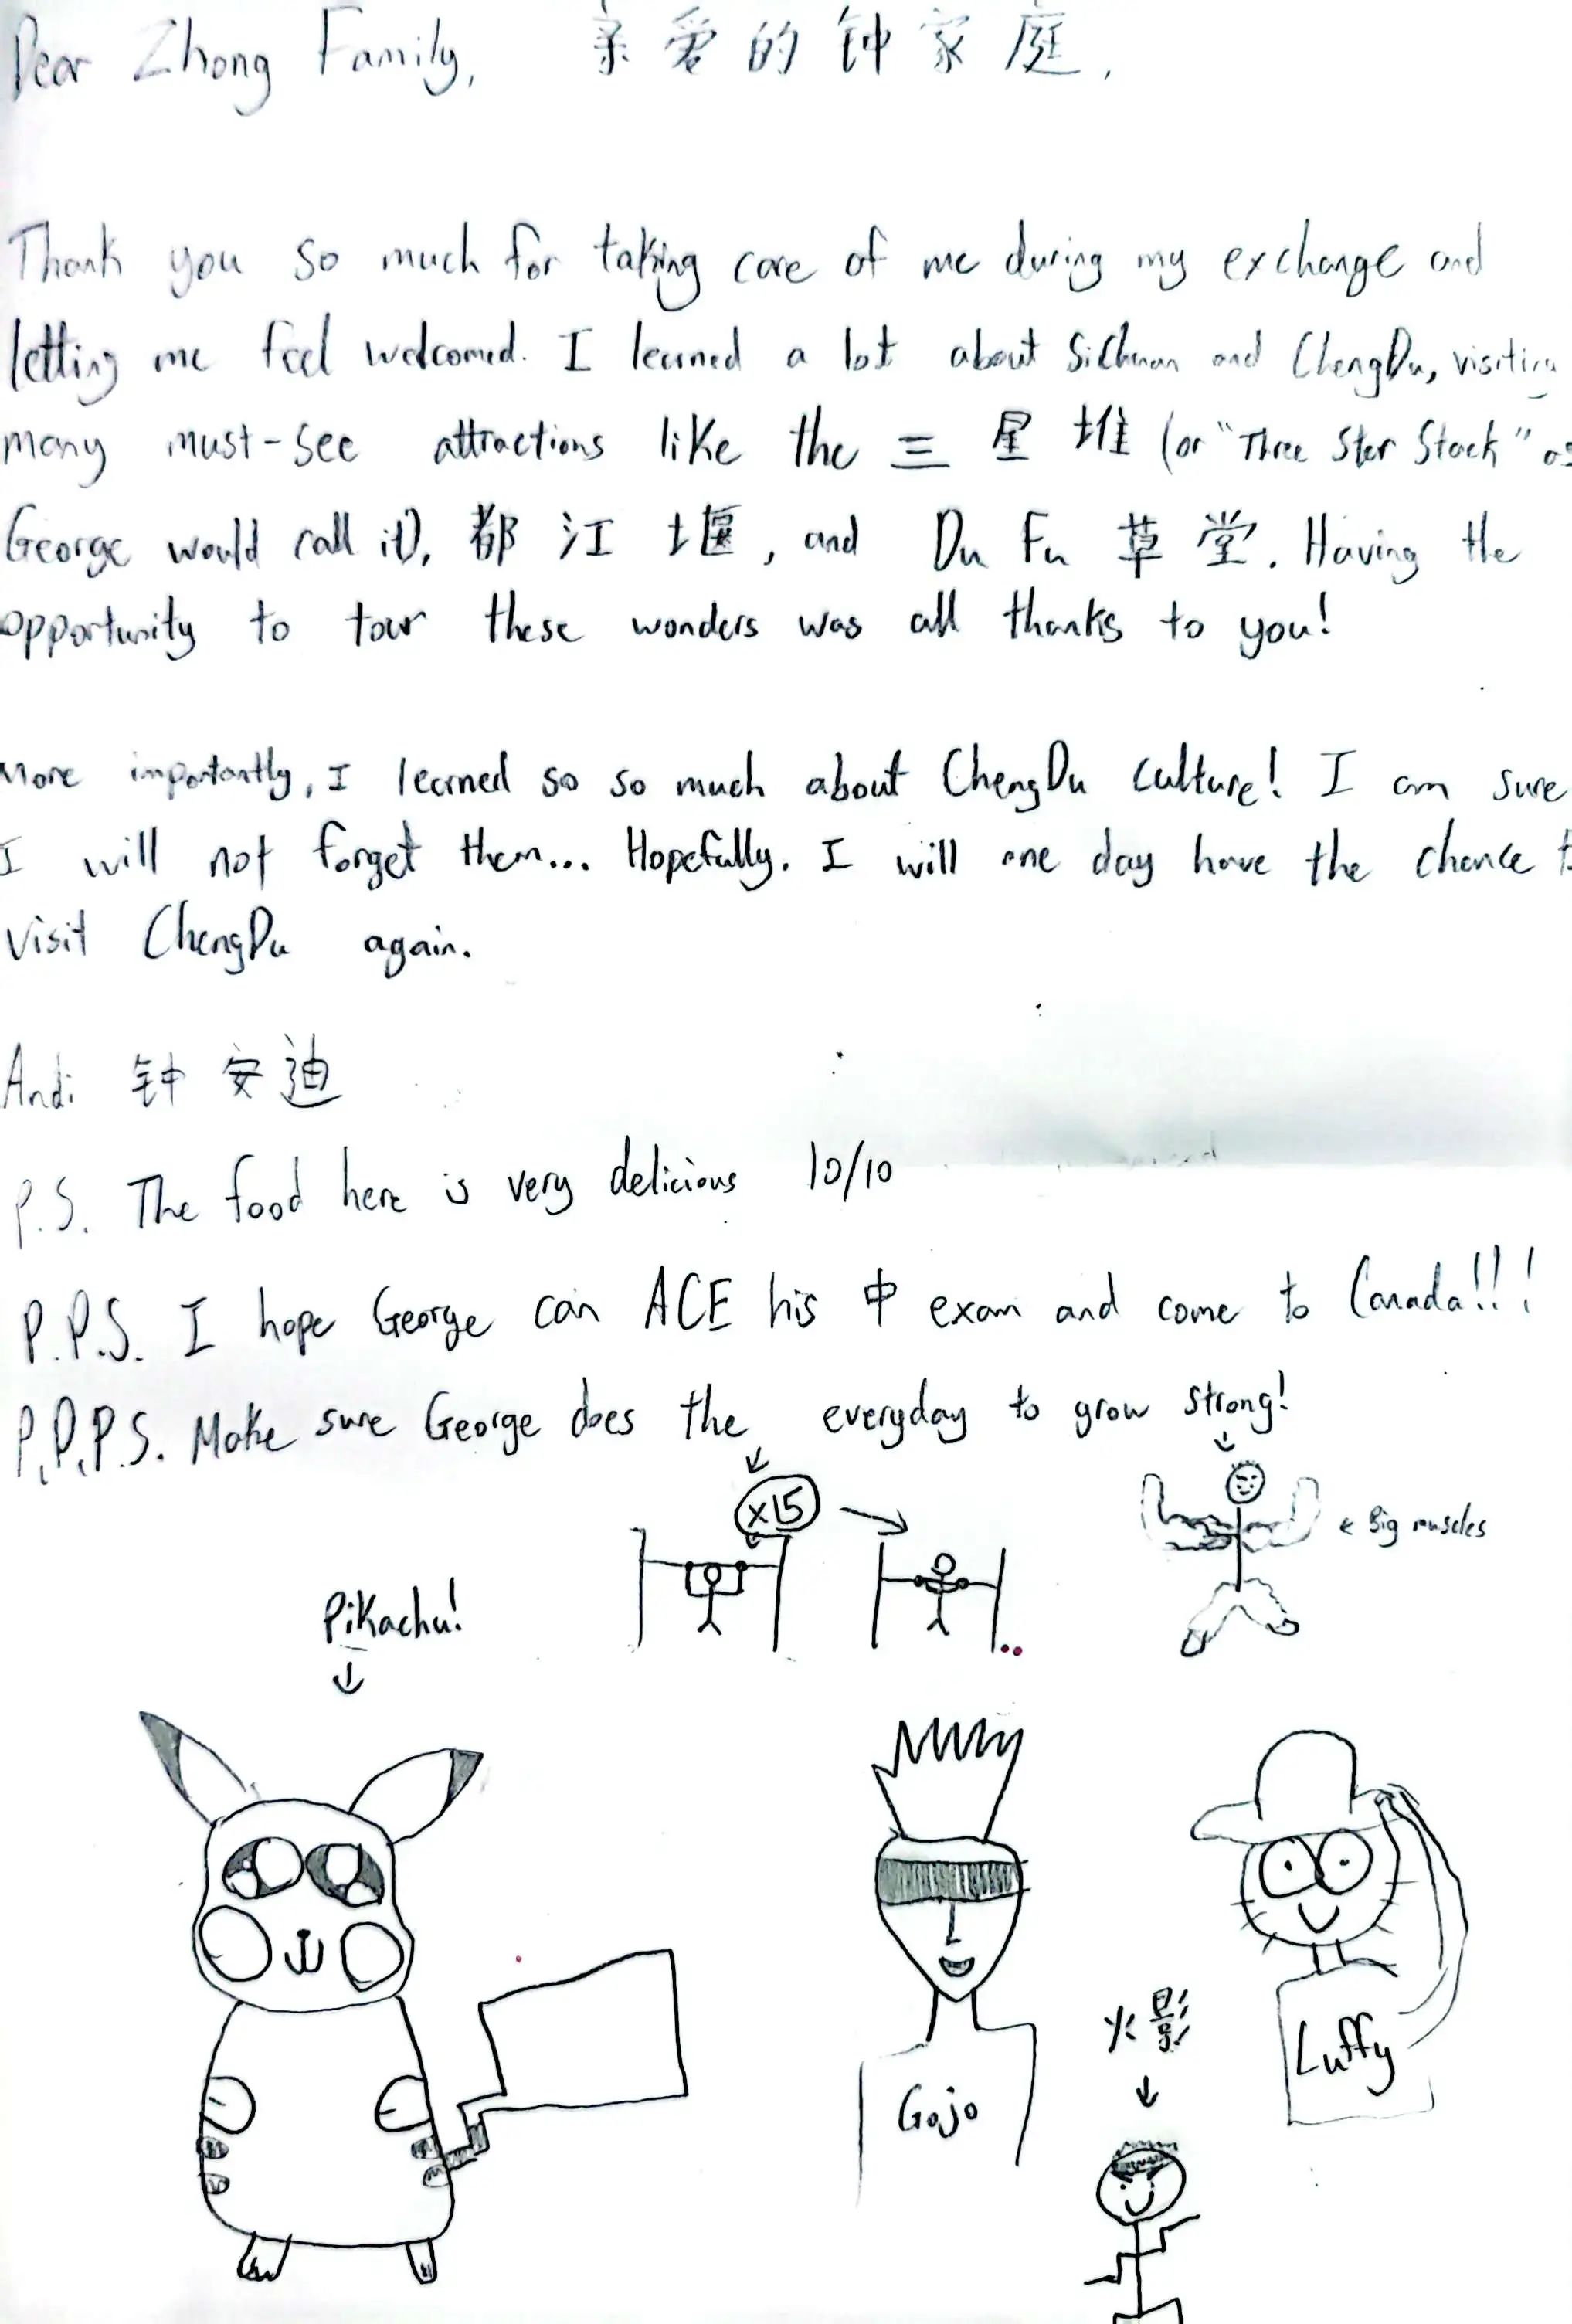 Dear Zhong Family, 亲爱的钟家庭,
Thank you so much for taking care of me during my exchange and
letting me feel welcomed. I learned a lot about Sichuan and ChengDu, visiting
many must-see attractions like the 三星堆 (or "Three Star Stack" as
George would call it), 都江堰, and Du Fu 草堂. Having the
opportunity to tour these wonders was all thanks to you!
More importantly, I learned so so much about ChengDu culture! I am sure
I will not forget them... Hopefully. I will one day have the chance to
visit ChengDu again.
Andi 钟安迪
P.S. The food here is very delicious 10/10
P.P.S. I hope George can ACE his 中 exam and come to Canada!!!
P.P.P.S. Make sure George does the everyday to grow strong!
x15
Big muscles
Pikachu!
Gojo
火影
Luffy